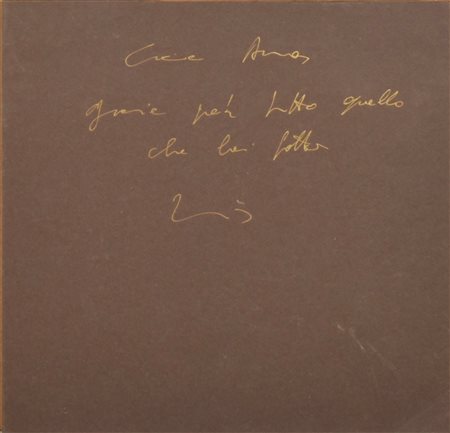 Cara Anna
grazie per tutto quello
che hai fatto